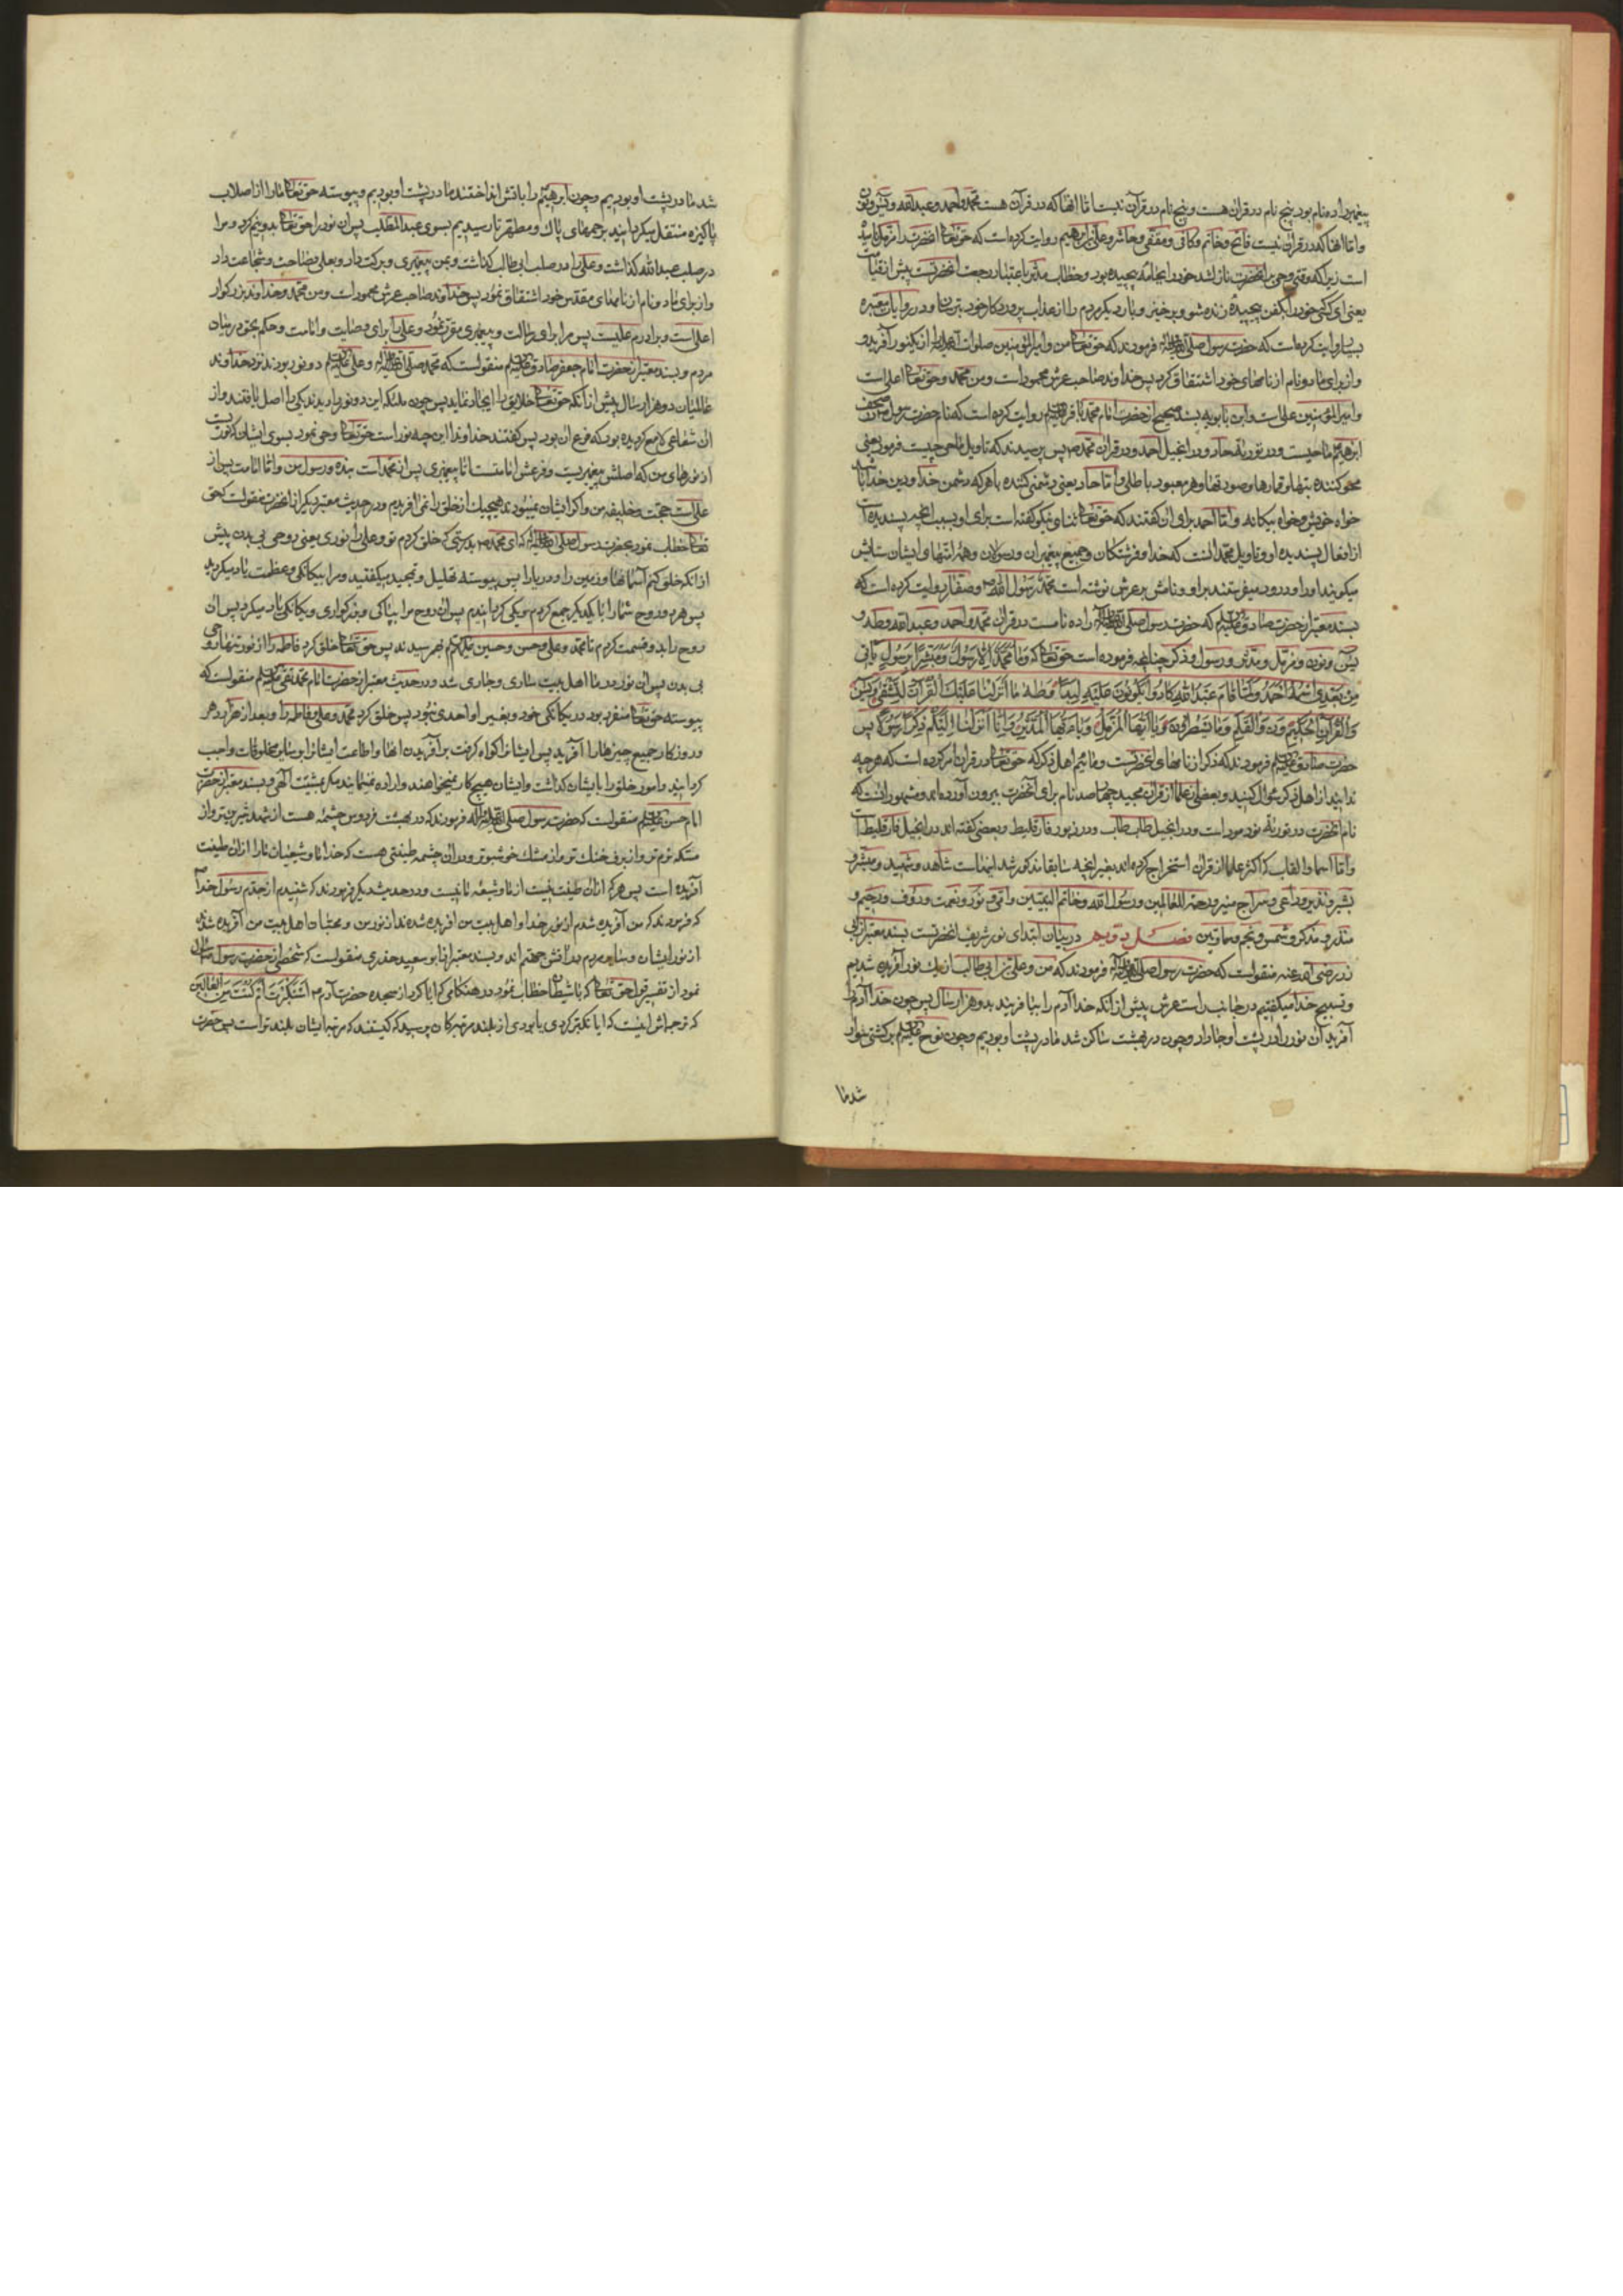 پیغمبر را ده نام بود پنج نام در قرآن هست و پنج نام در قرآن نیست اما آنها که در قرآن هست محمد و احمد و عبدالله و یس و نون
و اما آنها که در قرآن نیست فاتح و خاتم و کافی و مقفی و حاشر و علی بن ابراهیم روایت کرده است که حق تعالی آنحضرت را مزمل نامید
است زیرا که وقتی وحی بر آنحضرت نازل شد خود را بجامه پیچیده بود و خطاب مدثر باعتبار رجعت آنحضرتست پیش از قیامت
یعنی ای کسی خود را بکفن پیچیده زنده شو و برخیز و بار دیگر مردم را از عذاب پروردکار خود بترسان و در روایات معتبره
بسیار وایت کرده است که حضرت رسول صلی الله علیه و آله فرمودند که حق تعالی من و امیرالمؤمنین صلوات الله علیه را از یکنور آفرید و
و از برای ما دو نام از نامهای خود اشتقاق کرد پس خداوند صاحب عرش محمود است و من محمد و حق تعالی اعلی است
و امیرالمؤمنین علی است و ابن بابویه بسند صحیح از حضرت امام محمد باقر علیه السلم روایت کرده است که نام حضرت رسول ص در صحف
ابرهیم ماحیست و در توریة حاد و در انجیل احمد و در قرآن محمد ص پس پرسیدند که تاویل ماحی چیست فرمود یعنی
محو کننده بتها و قمارها و صورتها و هر معبود باطلی و اما حاد یعنی دشمنی کننده با هر که دشمن خدا و دین خدا باشد
خواه خویش و خواه بیکانه و اما احمد برای آن گفتند که حق تعالی ثنای نیکو گفته است برای او بسبب آنچه پسندیده است
از افعال پسندیده او و تاویل محمد آنست که خدا و فرشتکان و جمیع پیغمبران و رسولان و همه امتها ی ایشان ستایش
میکویند او را و درود میفرستند بر او و نامش بر عرش نوشته است محمد رسول الله ص و صفار روایت کرده است که
بسند معتبر از حضرت صادق علیه السلم که حضرت رسول صلی الله علیه و آله را ده نامست در قرآن محمد و احمد و عبدالله و طه و
یس و نون و مزمل و مدثر و رسول و ذکر چنانچه فرموده است حق تعالی که وما محمد الا رسول ومبشرا برسول یاتی
من بعدی اسمه احمد و لما قام عبدالله کادوا یکونون علیه لبدا و طه ما انزلنا علیک القرآن لتشقی ویس
والقرآن الحکیم ون والقلم وما یسطرون ویا ایها المزمل و یا ایها المدثر و انا انزلنا الیکم ذکرا رسولا پس
حضرت صادق علیه السلم فرمودند که ذکر از نامهای آنحضرتست و مائیم اهل ذکر که حق تعالی در قرآن امر کرده است که هر چه
ندانید از اهل ذکر سؤال کنید و بعضی از علما از قرآن مجید چهار صد نام برای آنحضرت بیرون آورده اند و مشهور آنست که
نام آنحضرت در توریة مودمود است و در انجیل طاب طاب و در زبور فارقلیط و بعضی گفته اند در انجیل فارقلیط است
و اما اسما و القاب که اکثر علما از قرآن استخراج کرده اند بغیر آنچه سابقا مذکور شد اینهاست شاهد و شهید و مبشر و
بشیر و نذیر و داعی و سراج منیر و رحمة للعالمین و رسول الله و خاتم النبیین و نبی و امی و نور و نعمت و رؤف و رحیم و
منذر و مذکر و شمس و نجم و سما و تین فصل دویم در بیان ابتدای نور شریف آنحضرتست بسند معتبر از ابی
ذر رضی الله عنه منقولست که حضرت رسول صلی الله علیه و آله فرمودند که من و علی بن ابی طالب از یک نور آفریده شدیم
و تسبیح خدا میکفتیم در جانب راست عرش پیش از آنکه خدا آدم را بیافریند بدو هزار سال پس چون خدا آدم را
آفرید آن نور را در پشت او جا داد و چون در بهشت ساکن شد ما در پشت او بودیم و چون نوح علیه السلم بر کشتی سوار
شد ما
شد ما در پشت او بودیم و چون ابرهیم را باتش انداختند ما در پشت او بودیم و پیوسته حق تعالی ما را از اصلاب
پاکیزه منتقل میکردانید برحمهای پاک و مطهر تا رسیدیم بسوی عبدالمطلب پس آن نور را حق تعالی بدو نیم کرد و مرا
در صلب عبدالله کذاشت و علی را در صلب ابی طالب کذاشت و بمن پیغمبری و برکت داد و بعلی فصاحت و شجاعت داد
و از برای ما دو نام از نامهای مقدس خود اشتقاق نمود پس خداوند صاحب عرش محمود است و من محمد و خداوند بزرکوار
اعلی است و برادرم علیست پس مرا برای رسالت و پیغمبری مقرر نمود و علی را برای وصایت و امامت و حکم بحق در میان
مردم و بسند معتبر از حضرت امام جعفر صادق علیه السلم منقولست که محمد صلی الله علیه و آله و علی علیه السلم دو نور بودند نزد خداوند
عالمیان دو هزار سال پیش از آنکه حق تعالی خلایق را ایجاد نماید پس چون ملئکه این دو نور را دیدند یکی را اصل یافتند و از
آن شعاعی لامع کردیده بود که فرع آن بود پس کفتند خداوندا این چه نور است حق تعالی وحی نمود بسوی ایشان که این نوریست
از نورهای من که اصلش پیغمبریست و فرعش امامتست اما پیغمبری پس از محمد است بنده و رسول من و اما امامت پس از
علی است حجت و خلیفه من و اکر ایشان نمیبودند هیچیک از خلق را نمی آفریدم و در حدیث معتبر دیکر از آنحضرت منقولست که حق
تعالی خطاب نمود بحضرت رسول صلی الله علیه و آله که ای محمد ص بدرستی که خلق کردم تو و علی را نوری یعنی روحی بی بدن پیش
از آنکه خلق کنم آسمانها و زمین را و دریا را پس پیوسته تهلیل و تمجید میکفتید و مرا بیکانکی و عظمت یاد میکردید
پس هر دو روح شما را با یکدیکر جمع کردم و یکی کردانیدم پس آن روح مرا بپاکی و بزرکواری و یکانکی یاد میکرد پس آن
روح را بدو قسمت کردم تا محمد و علی و حسن و حسین علیهم السلم بهم رسیدند پس حق تعالی خلق کرد فاطمه را از نور تنها روحی
بی بدن پس آن نور در ما اهل بیت ساری و جاری شد و در حدیث معتبر از حضرت امام محمد تقی علیه السلم منقولست که
پیوسته حق تعالی متفرد بود در یکانکی خود و بغیر او احدی نبود پس خلق کرد محمد و علی و فاطمه را و بعد از هزار دهر
و روزکار جمیع چیزها را آفرید پس ایشانرا کواه کرفت بر آفریدن آنها و اطاعت ایشانرا بر سایر مخلوقات واجب
کردانید و امور خلق را بایشان کذاشت و ایشان هیچ کار نمیخواهند و اراده نمینمایند مکر بمشیت الهی و بسند معتبر از حضرت
امام حسن علیه السلم منقولست که حضرت رسول صلی الله علیه و آله فرمودند که در بهشت فردوس چشمه هست از شهد شیرین تر و از
مسکه نرم تر و از برف خنک تر و از مشک خوشبوتر و در آن چشمه طینتی هست که خدا ما و شیعیان ما را از آن طینت
آفریده است پس هر که از آن طینت نیست از ما و شیعه ما نیست و در حدیث دیکر فرمودند که شنیدم از جدم رسول خدا
که فرمودند که من آفریده شدم از نور خدا و اهل بیت من آفریده شده اند از نور من و محبان اهل بیت من آفریده شده
از نور ایشان و سایر مردم در آتش جهنم اند و بسند معتبر از ابو سعید خدری منقولست که شخصی از حضرت رسول ص سؤال
نمود از تفسیر قول حق تعالی که با شیطان خطاب نمود در هنکامی که ابا کرد از سجده حضرت آدم استکبرت ام کنت من العالین
که ترجمه اش اینست که ایا تکبر کردی یا بودی از بلند مرتبه کان پرسید که کیستند که مرتبه ایشان بلند تر است پس حضرت